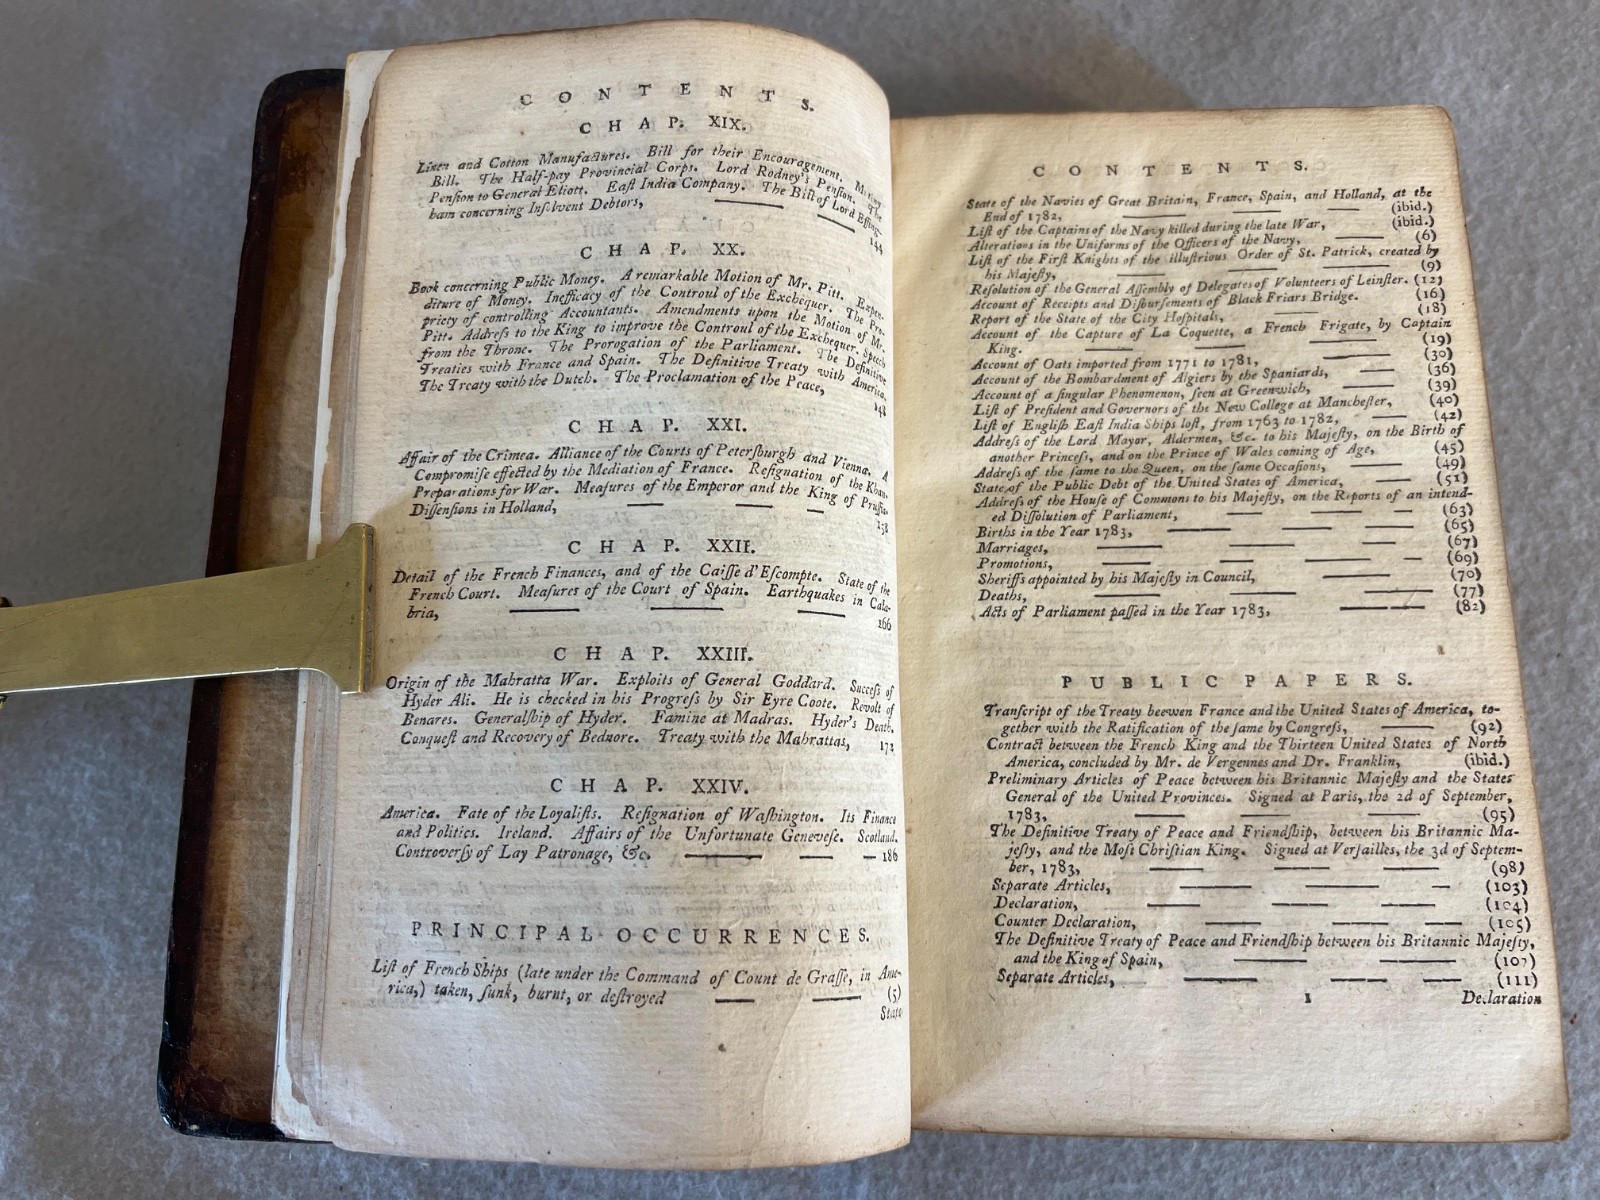 CONTENTS.
CHAP. XIX.
Linen and Cotton Manufactures. Bill for their Encouragement. Mutiny
Bill. The Half-pay Provincial Corps. Lord Rodney's Pension. The
Pension to General Eliott. East India Company. The Bill of Lord Effing-
ham concerning Insolvent Debtors, 144
CHAP. XX.
Book concerning Public Money. A remarkable Motion of Mr. Pitt. Expen-
diture of Money. Inefficacy of the Controul of the Exchequer. The Pro-
priety of controlling Accountants. Amendments upon the Motion of Mr.
Pitt. Address to the King to improve the Controul of the Exchequer. Speech
from the Throne. The Prorogation of the Parliament. The Definitive
Treaties with France and Spain. The Definitive Treaty with America.
The Treaty with the Dutch. The Proclamation of the Peace, 148
CHAP. XXI.
Affair of the Crimea. Alliance of the Courts of Petersburgh and Vienna. A
Compromise effected by the Mediation of France. Resignation of the Khan.
Preparations for War. Measures of the Emperor and the King of Prussia.
Dissensions in Holland, 158
CHAP. XXII.
Detail of the French Finances, and of the Caisse d'Escompte. State of the
French Court. Measures of the Court of Spain. Earthquakes in Cala-
bria, 166
CHAP. XXIII.
Origin of the Mahratta War. Exploits of General Goddard. Success of
Hyder Ali. He is checked in his Progress by Sir Eyre Coote. Revolt of
Benares. Generalship of Hyder. Famine at Madras. Hyder's Death.
Conquest and Recovery of Bednore. Treaty with the Mahrattas, 172
CHAP. XXIV.
America. Fate of the Loyalists. Resignation of Washington. Its Finance
and Politics. Ireland. Affairs of the Unfortunate Genevese. Scotland.
Controversy of Lay Patronage, &c. 186
PRINCIPAL OCCURRENCES.
List of French Ships (late under the Command of Count de Grasse, in Ame-
rica,) taken, sunk, burnt, or destroyed (5)
State
CONTENTS.
State of the Navies of Great Britain, France, Spain, and Holland, at the
End of 1782, (ibid.)
List of the Captains of the Navy killed during the late War, (ibid.)
Alterations in the Uniforms of the Officers of the Navy, (6)
List of the First Knights of the illustrious Order of St. Patrick, created by
his Majesty, (9)
Resolution of the General Assembly of Delegates of Volunteers of Leinster. (12)
Account of Receipts and Disbursements of Black Friars Bridge. (16)
Report of the State of the City Hospitals, (18)
Account of the Capture of La Coquette, a French Frigate, by Captain
King. (19)
Account of Oats imported from 1771 to 1781, (30)
Account of the Bombardment of Algiers by the Spaniards, (36)
Account of a singular Phenomenon, seen at Greenwich, (39)
List of President and Governors of the New College at Manchester, (40)
List of English East India Ships lost, from 1763 to 1782, (42)
Address of the Lord Mayor, Aldermen, &c. to his Majesty, on the Birth of
another Princess, and on the Prince of Wales coming of Age, (45)
Address of the same to the Queen, on the same Occasions, (49)
State of the Public Debt of the United States of America, (51)
Address of the House of Commons to his Majesty, on the Reports of an intend-
ed Dissolution of Parliament, (63)
Births in the Year 1783, (65)
Marriages, (67)
Promotions, (69)
Sheriffs appointed by his Majesty in Council, (70)
Deaths, (77)
Acts of Parliament passed in the Year 1783, (82)
PUBLIC PAPERS.
Transcript of the Treaty beween France and the United States of America, to-
gether with the Ratification of the same by Congress, (92)
Contract between the French King and the Thirteen United States of North
America, concluded by Mr. de Vergennes and Dr. Franklin, (ibid.)
Preliminary Articles of Peace between his Britannic Majesty and the States
General of the United Provinces. Signed at Paris, the 2d of September,
1783, (95)
The Definitive Treaty of Peace and Friendship, between his Britannic Ma-
jesty, and the Most Christian King. Signed at Versailles, the 3d of Septem-
ber, 1783, (98)
Separate Articles, (103)
Declaration, (104)
Counter Declaration, (105)
The Definitive Treaty of Peace and Friendship between his Britannic Majesty,
and the King of Spain, (107)
Separate Articles, (111)
1 Declaration